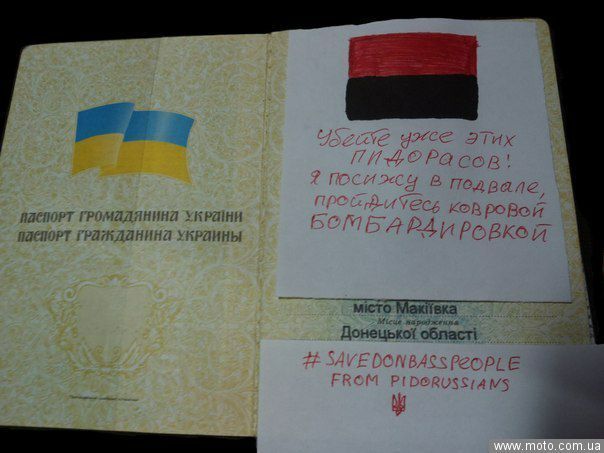 ПАСПОРТ ГРОМАДЯНИНА УКРАЇНИ
ПАСПОРТ ГРАЖДАНИНА УКРАИНЫ
Убейте уже этих
ПИДОРАСОВ!
Я посижу в подвале,
пройдитесь ковровой
БОМБАРДИРОВКОЙ
місто Макіївка
Место рождения
Донецької області
# SAVEDONBASSPEOPLE
FROM PIDORUSSIANS
www.moto.com.ua